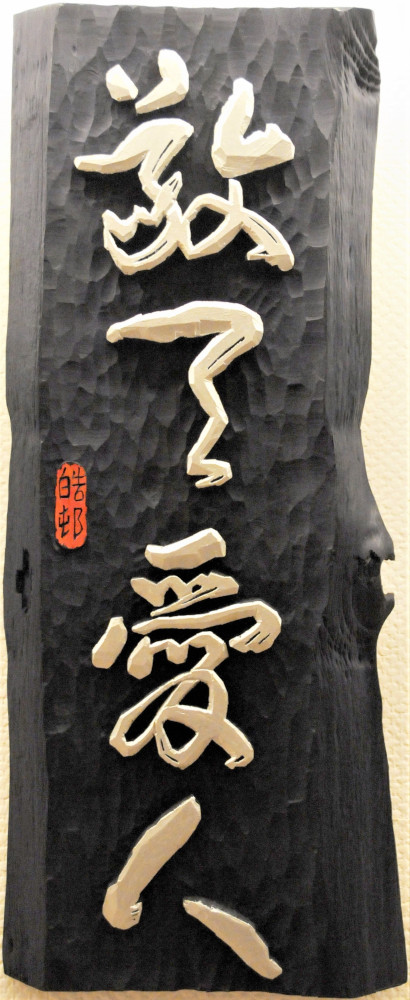 敬天愛人
皓邨